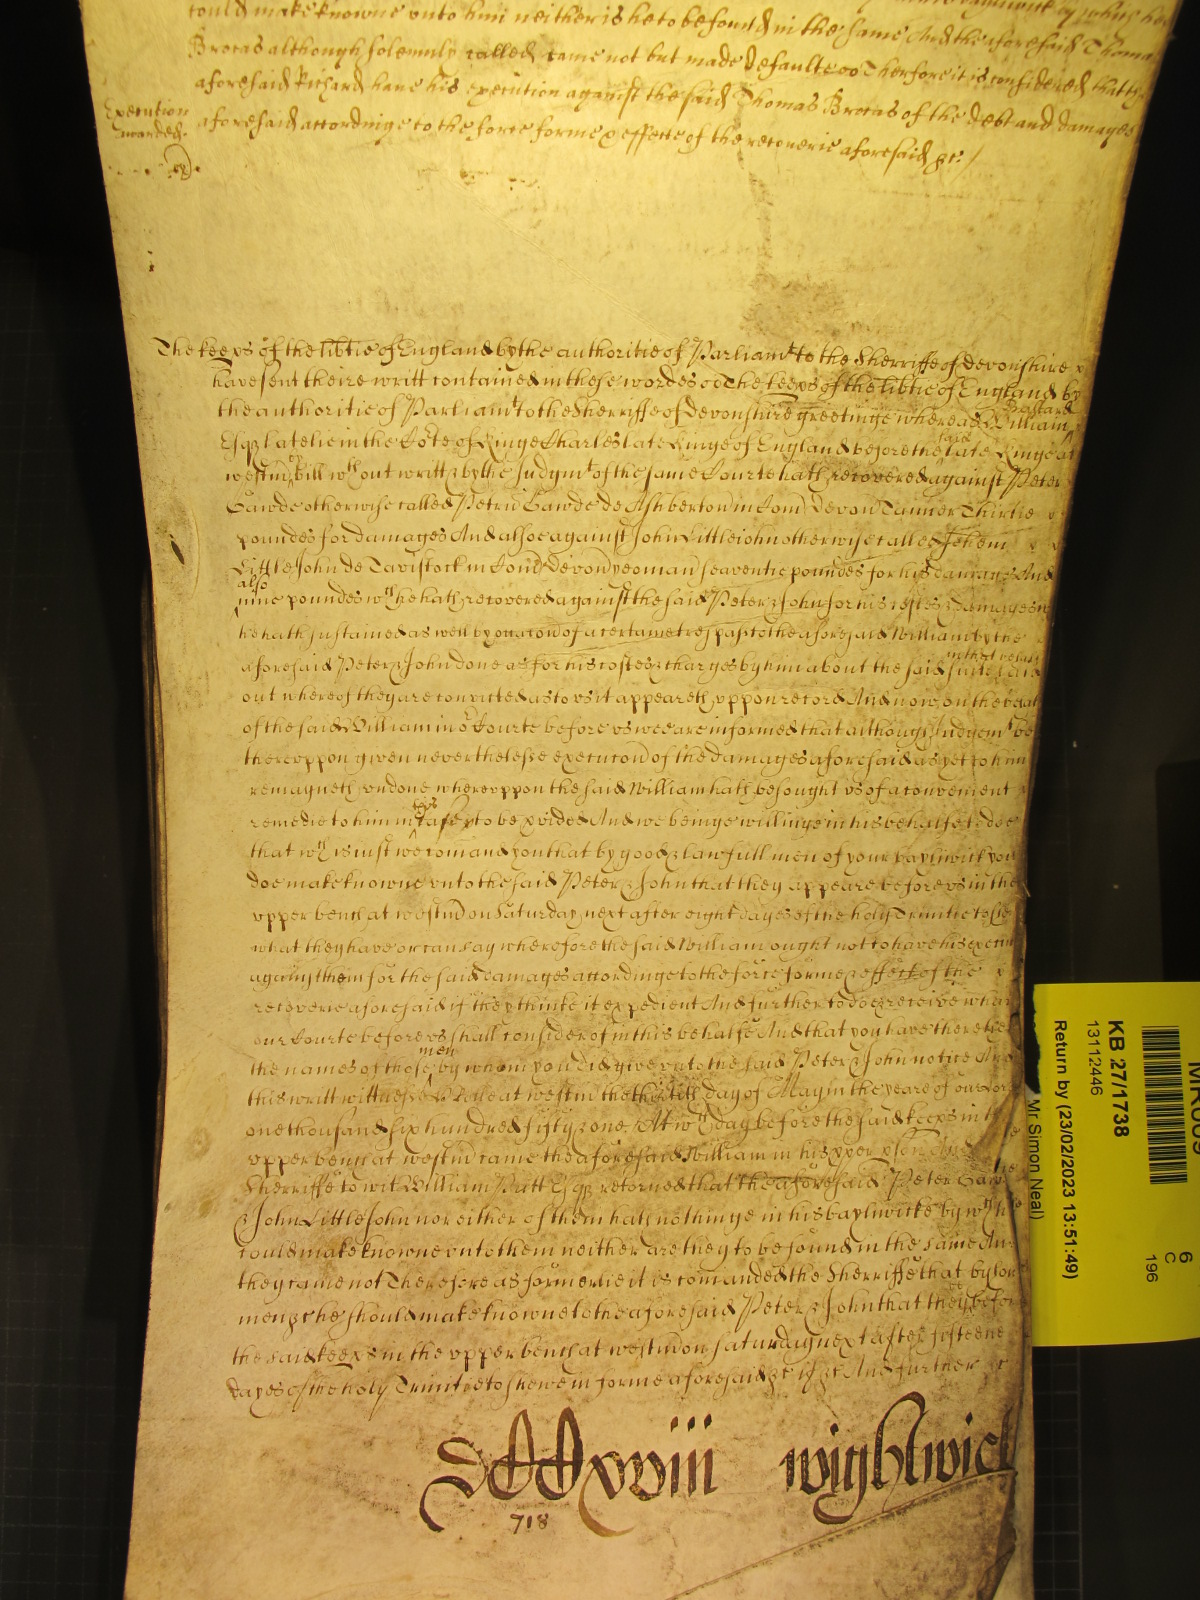 could make knowne unto him neither is he to be found in the same And the aforesaid Thomas
Brocas although solemnly called came not but made defaulte Therfore it is considered that the
aforesaid Richard have his execution against the said Thomas Brocas of the debt and damages
Execution awarded.
aforesaid accordinge to the force forme & effecte of the recoverie aforesaid &c.
The keeps of the libtie of England by the authoritie of Parliamt to the Sherriffe of Devonshire
have sent theire writt contained in these wordes The keeps of the libtie of England by
the authoritie of Parliamt to the Sherriffe of Devonshire greetinge whereas William Bastard
Esqr latelie in the Cote of Kinge Charles late Kinge of England before the said late Kinge at
westm by bill wthout writt & by the Judgmt of the same Courte hath recovered against Peter
Gawde otherwise called Petru Gawde de Ashberton in Com Devon Tanner Thirtie
poundes for damages And alsoe against John Littlejohn otherwise called Johem
LittleJohn de Tavistock in Com Devon yeoman seaventie poundes for his damages And
also nine poundes wch he hath recovered against the said Peter & John for his costes & damages wch
he hath sustained as well by occacon of a certaine trespas to the aforesaid William by the
aforesaid Peter & John done as for his costes & charges by him about his suite in that behalf laid
out whereof they are convicted as to us it appeareth uppon record And now on the behalf
of the said William in or Courte before us wee are informed that although Judgemt be
thereuppon given neverthelesse execucon of the damages aforesaid as yet to him
remayneth undone whereuppon the said William hath besought us of a convenient
remedie to him in this case to be pvided And we beinge willinge in his behalfe to doe
that wch is iust we comand you that by good & lawfull men of your bayliwick you
doe make knowne unto the said Peter & John that they appeare before us in the
upper bench at westm on Saturday next after eight dayes of the holy Trinitie to shew
what they have or can say wherefore the said William ought not to have his execucon
against them for the said damages accordinge to the force forme & effect of the
recoverie aforesaid if they thinke it expedient And further to doe & receive what
our Courte before us shall consider of in this behalfe And that you have there the
the names of those men by whom you did give unto the said Peter & John notice And
this writt wittnes Rolle at westm the day of May in the yeare of our Lord
one thousand six hundred fifty & one. At wch day before the said keeps in the
upper bench at westm came the aforesaid William in his pper pson And the
Sherriffe to wit William Putt Esqr retorned that the aforesaid Peter Gawde
& John LittleJohn nor either of them hath nothinge in his bayliwicke by wch he
could make knowne unto them neither are they to be found in the same And
they came not Therefore as formerlie it is comanded the Sherriffe that by
men &c he should make knowne to the aforesaid Peter & John that they be before
the said keeps in the upper bench at westm on saturday next after fifteene
dayes of the holy Trinitie to shewe in forme aforesaid &c if &c And further &c
DCCxviii wightwick
718
KB 27/1738
13112446
Return by (23/02/2023 13:51:49)
Mr. Simon Neal)
6
C
196